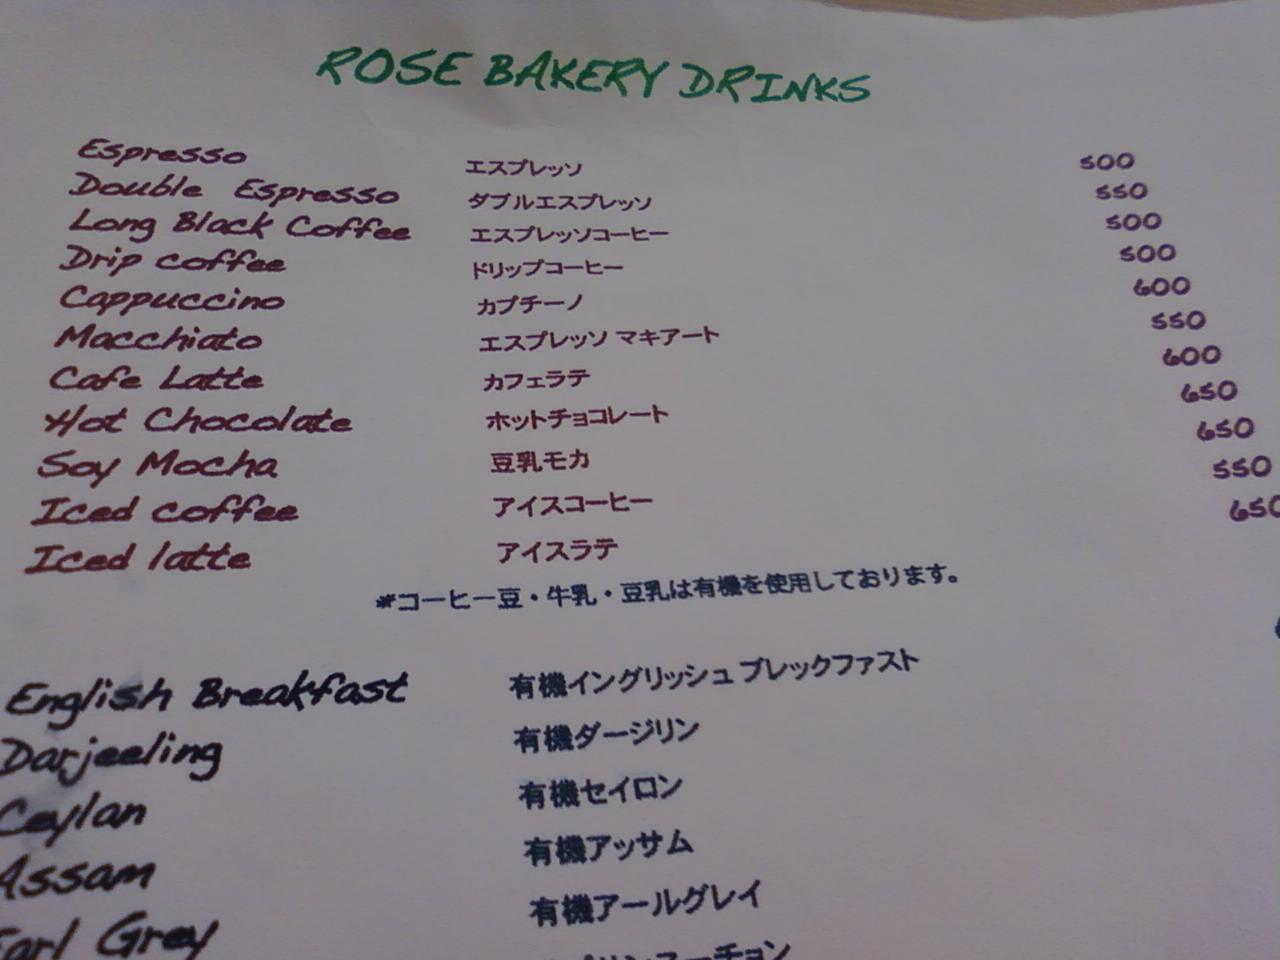 ROSE BAKERY DRINKS
Espresso エスプレッソ 500
Double Espresso ダブルエスプレッソ 550
Long Black Coffee エスプレッソコーヒー 500
Drip coffee ドリップコーヒー 500
Cappuccino カプチーノ 600
Macchiato エスプレッソ マキアート 550
Cafe Latte カフェラテ 600
Hot Chocolate ホットチョコレート 650
Soy Mocha 豆乳モカ 650
Iced coffee アイスコーヒー 550
Iced latte アイスラテ 650
*コーヒー豆・牛乳・豆乳は有機を使用しております。
English Breakfast 有機イングリッシュ ブレックファスト
Darjeeling 有機ダージリン
Ceylan 有機セイロン
Assam 有機アッサム
Earl Grey 有機アールグレイ